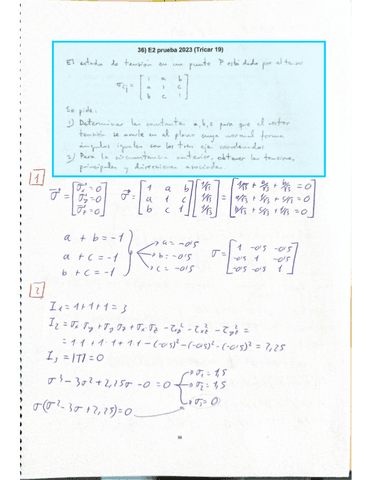 36) E2 prueba 2023 (Tricar 19)
El estado de tensión en un punto P está dado por el tensor
σij = [1 a b
a 1 c
b c 1]
Se pide:
1) Determinar las constantes a, b, c para que el vector
tensión se anule en el plano cuya normal forma
ángulos iguales con los tres ejes coordenados
2) Para la circunstancia anterior, obtener las tensiones
principales y direcciones asociadas.
1
a + b = -1
a + c = -1
b + c = -1
a = -0'5
b = -0'5
c = -0'5
σ = [1 -0'5 -0'5
-0'5 1 -0'5
-0'5 -0'5 1]
2
I1 = 1+1+1 = 3
I2 = σx σy + σy σz + σx σz - τxy² - τxz² - τyz² =
= 1·1 + 1·1 + 1·1 - (-0'5)² - (-0'5)² - (-0'5)² = 2,25
I3 = |T| = 0
σ³ - 3σ² + 2,25σ - 0 = 0
σ1 = 1,5
σ2 = 1,5
σ3 = 0
σ(σ² - 3σ + 2,25) = 0